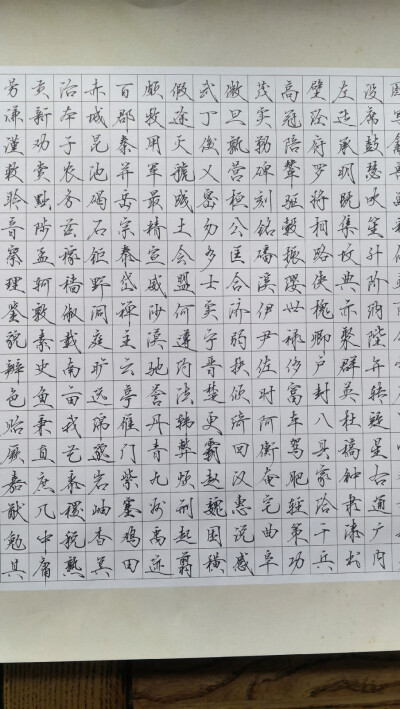 设席鼓瑟吹笙升阶纳陛弁转疑星右通广内
左达承明既集坟典亦聚群英杜稿钟隶漆书
壁经府罗将相路侠槐卿户封八县家给千兵
高冠陪辇驱毂振缨世禄侈富车驾肥轻策功
茂实勒碑刻铭磻溪伊尹佐时阿衡奄宅曲阜
微旦孰营桓公匡合济弱扶倾绮回汉惠说感
武丁俊乂密勿多士实宁晋楚更霸赵魏困横
假途灭虢践土会盟何遵约法韩弊烦刑起翦
颇牧用军最精宣威沙漠驰誉丹青九州禹迹
百郡秦并岳宗泰岱禅主云亭雁门紫塞鸡田
赤城昆池碣石钜野洞庭旷远绵邈岩岫杳冥
治本于农务兹稼穑俶载南亩我艺黍稷税熟
贡新劝赏黜陟孟轲敦素史鱼秉直庶几中庸
劳谦谨敕聆音察理鉴貌辨色贻厥嘉猷勉其